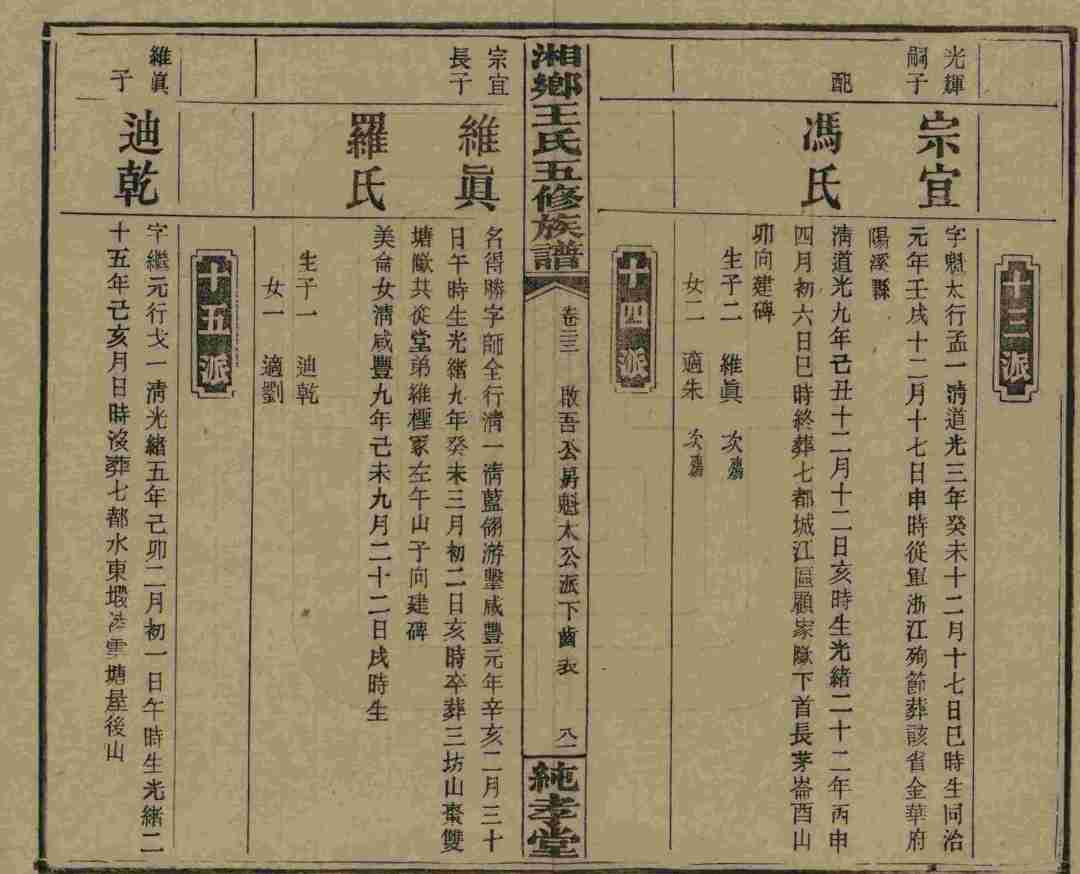 十三派
光輝嗣子
宗宜
字魁太行孟一清道光三年癸未十二月十七日巳時生同治
元年壬戌十二月十七日申時從軍浙江殉節葬該省金華府
陽溪縣
配
馮氏
清道光九年己丑十二月十二日亥時生光緒二十二年丙申
四月初六日巳時終葬七都城江區顧家隞下首長茅崙酉山
卯向建碑
生子二 維眞 次殤
女二 適朱 次殤
十四派
湘鄉王氏五修族譜
卷三三 啟吾公房魁太公派下齒表 八一
純孝堂
宗宜長子
維眞
名得勝字師全行清一清藍翎游擊咸豐元年辛亥二月三十
日午時生光緒九年癸未三月初二日亥時卒葬三坊山棗雙
塘隞共從堂弟維㮚冢左午山子向建碑
羅氏
美侖女清咸豐九年己未九月二十二日戌時生
生子一 迪乾
女一 適劉
十五派
維眞子
迪乾
字繼元行戈一清光緒五年己卯二月初一日午時生光緒二
十五年己亥月日時沒葬七都水東塅雲塘屋後山